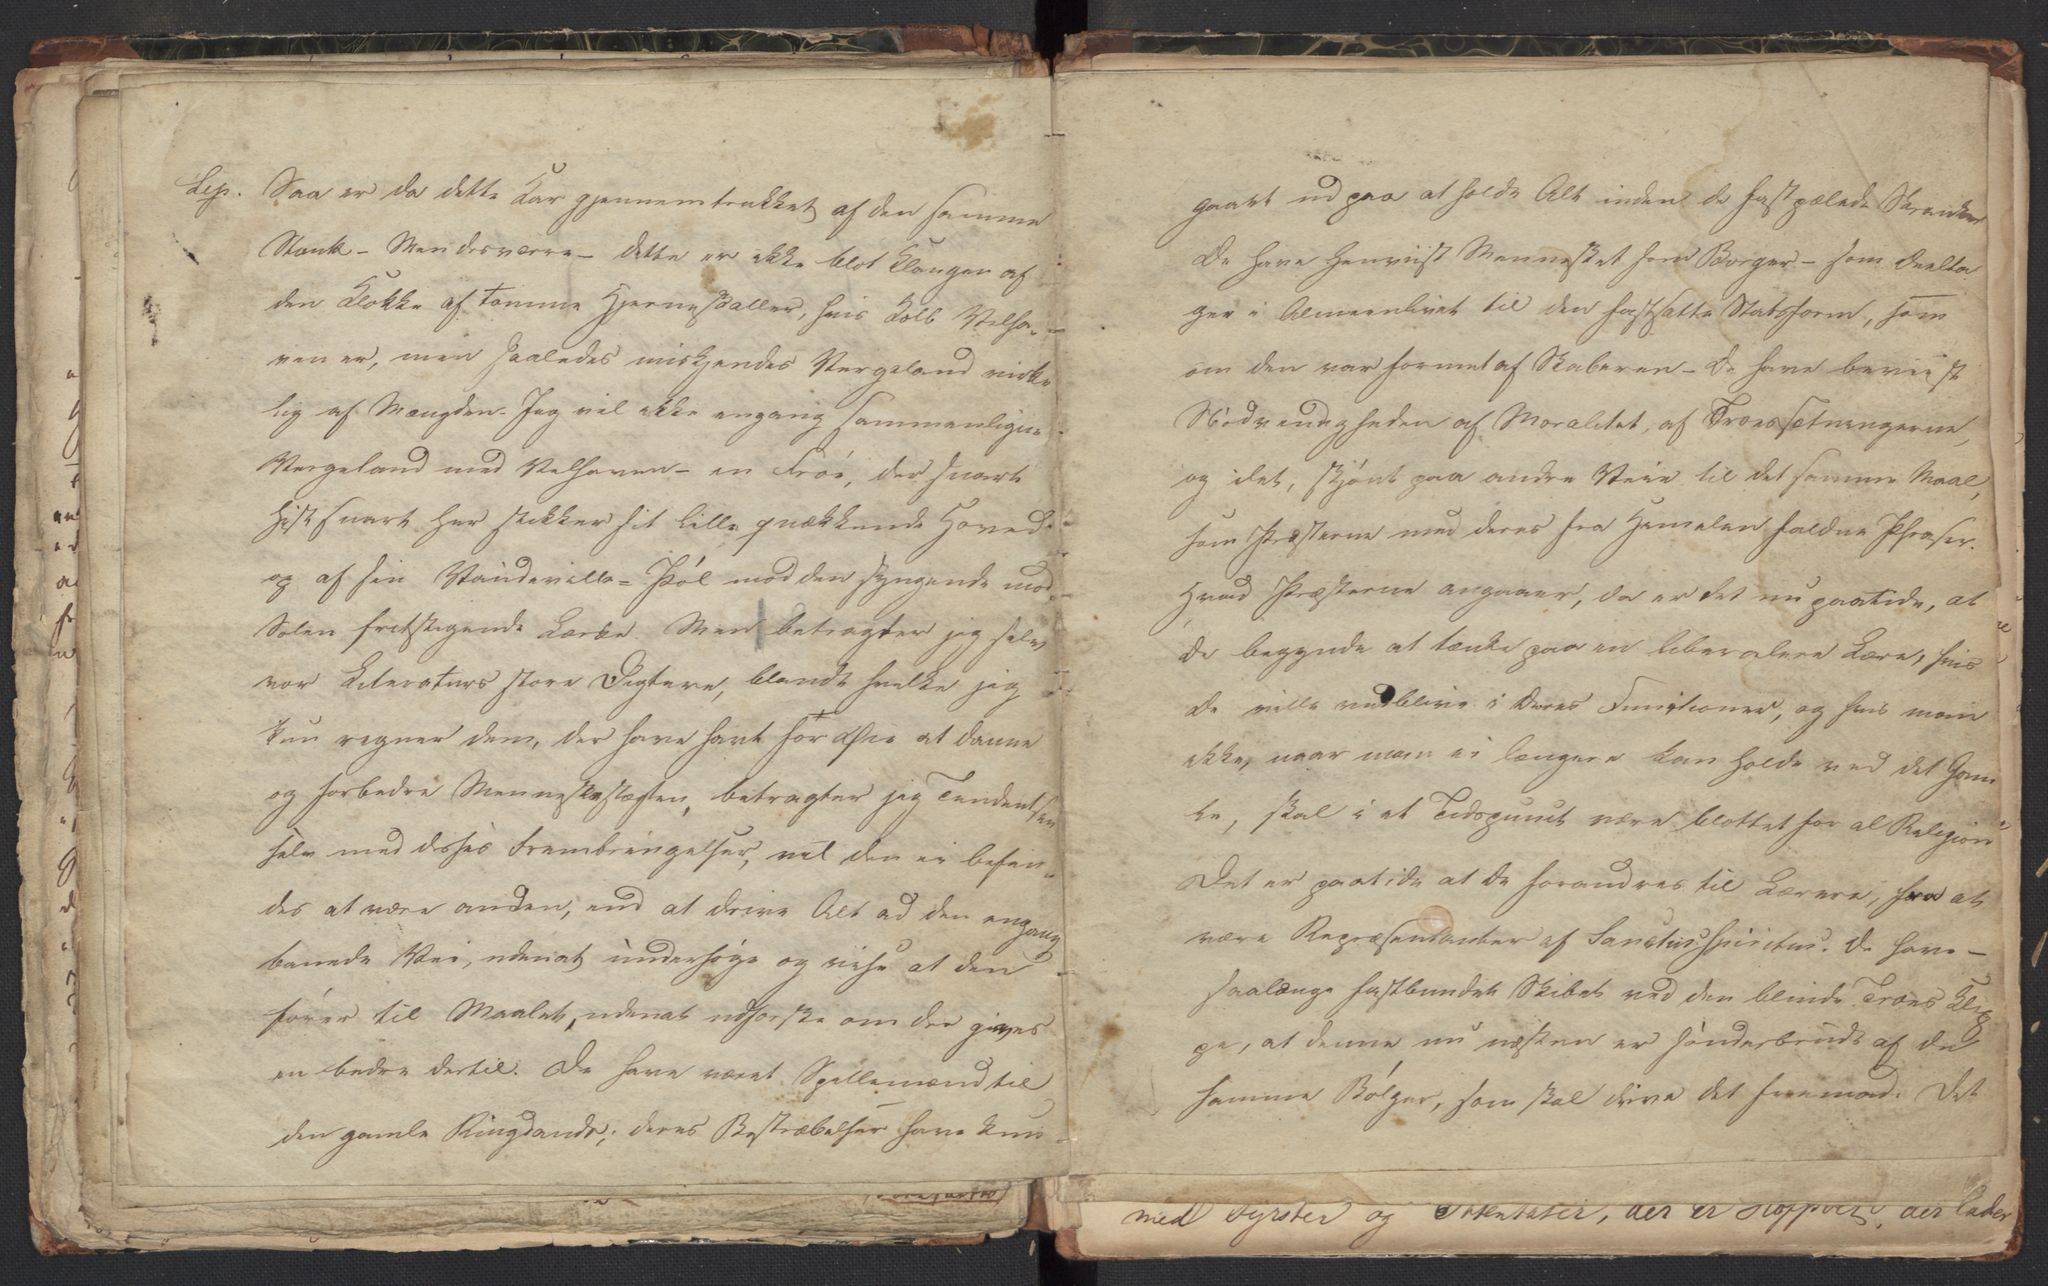 Lip. Saa er da dette Kar gjennemtrukket af den samme
Stank – Mendesværre – dette er ikke blot Klangen af
den Klokke af tomme Hjerneskaller, hvis Kolb Velha-
ven er, men saaledes miskjendes Vergeland virke
lig af Mængden. Jeg vil ikke engang sammenligne
Vergeland med Velhaven – en Frøe, der snart
hist snart her stikker sit lille qvækkende Hoved
op af sin Vaudeville-Pöl mod den syngende mod
Solen fritstigende Lærke. Men betragter jeg selv
vor Literaturs store Digtere, blandt hvilke jeg
kun regner dem, der have havt for Øie at danne
og forbedre Menneskeslægten, betragter jeg Tendentsen
selv med disses Frembringelser, vil den ei befin-
des at være anden, end at drive Alt ad den engang
banede Vei, udenat undersøge og vise at den
fører til Maalet, udenat udforske om der gives
en bedre dertil. De have været Spillemænd til
den gamle Ringdands; deres Bestræbelser have kun
gaaet ud paa at holde Alt inden de fastpælede Skranker
De have henviist Mennesket som Borger – som deelta
ger i Almeenlivet til den fastsatte Statsform, som
om den var formet af Skaberen – De have beviist
Nödvendigheden af Moralitet, af Troessætningerne,
og idet, skjönt paa andre Veie til det samme Maal,
som Præsterne med deres fra Himelen faldne Phraser.
Hvad Præsterne angaaer, da er det nu paatide, at
de begynde at tænke paa en liberalere Lære, hvis
de ville vedblive i deres Functioner, og hvis man
ikke, naar man ei længere kan holde ved det Gam
le, skal i et Tidspunct være blottet for al Religion
Det er paatide at de forandres til Lærere, fra at
være Repræsentanter af Sanctus Spiritus. De have –
saalænge fastbundet Skibet ved den blinde Troes Klip
pe, at denne nu næsten er sönderbrudt af de
samme Bölger, som skal drive det fremad. Det
med Fyrster og Potentater, der er Kopper, der lader